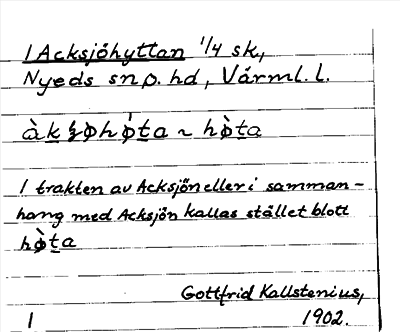 1 Acksjöhyttan 1/4 sk,
Nyeds sn o. hd, Värml. l.
àkʂøhø̀ta ~ hø̀ta
I trakten av Acksjön eller i samman-
hang med Acksjön kallas stället blott
hø̀ta
Gottfrid Kallstenius,
1 1902.